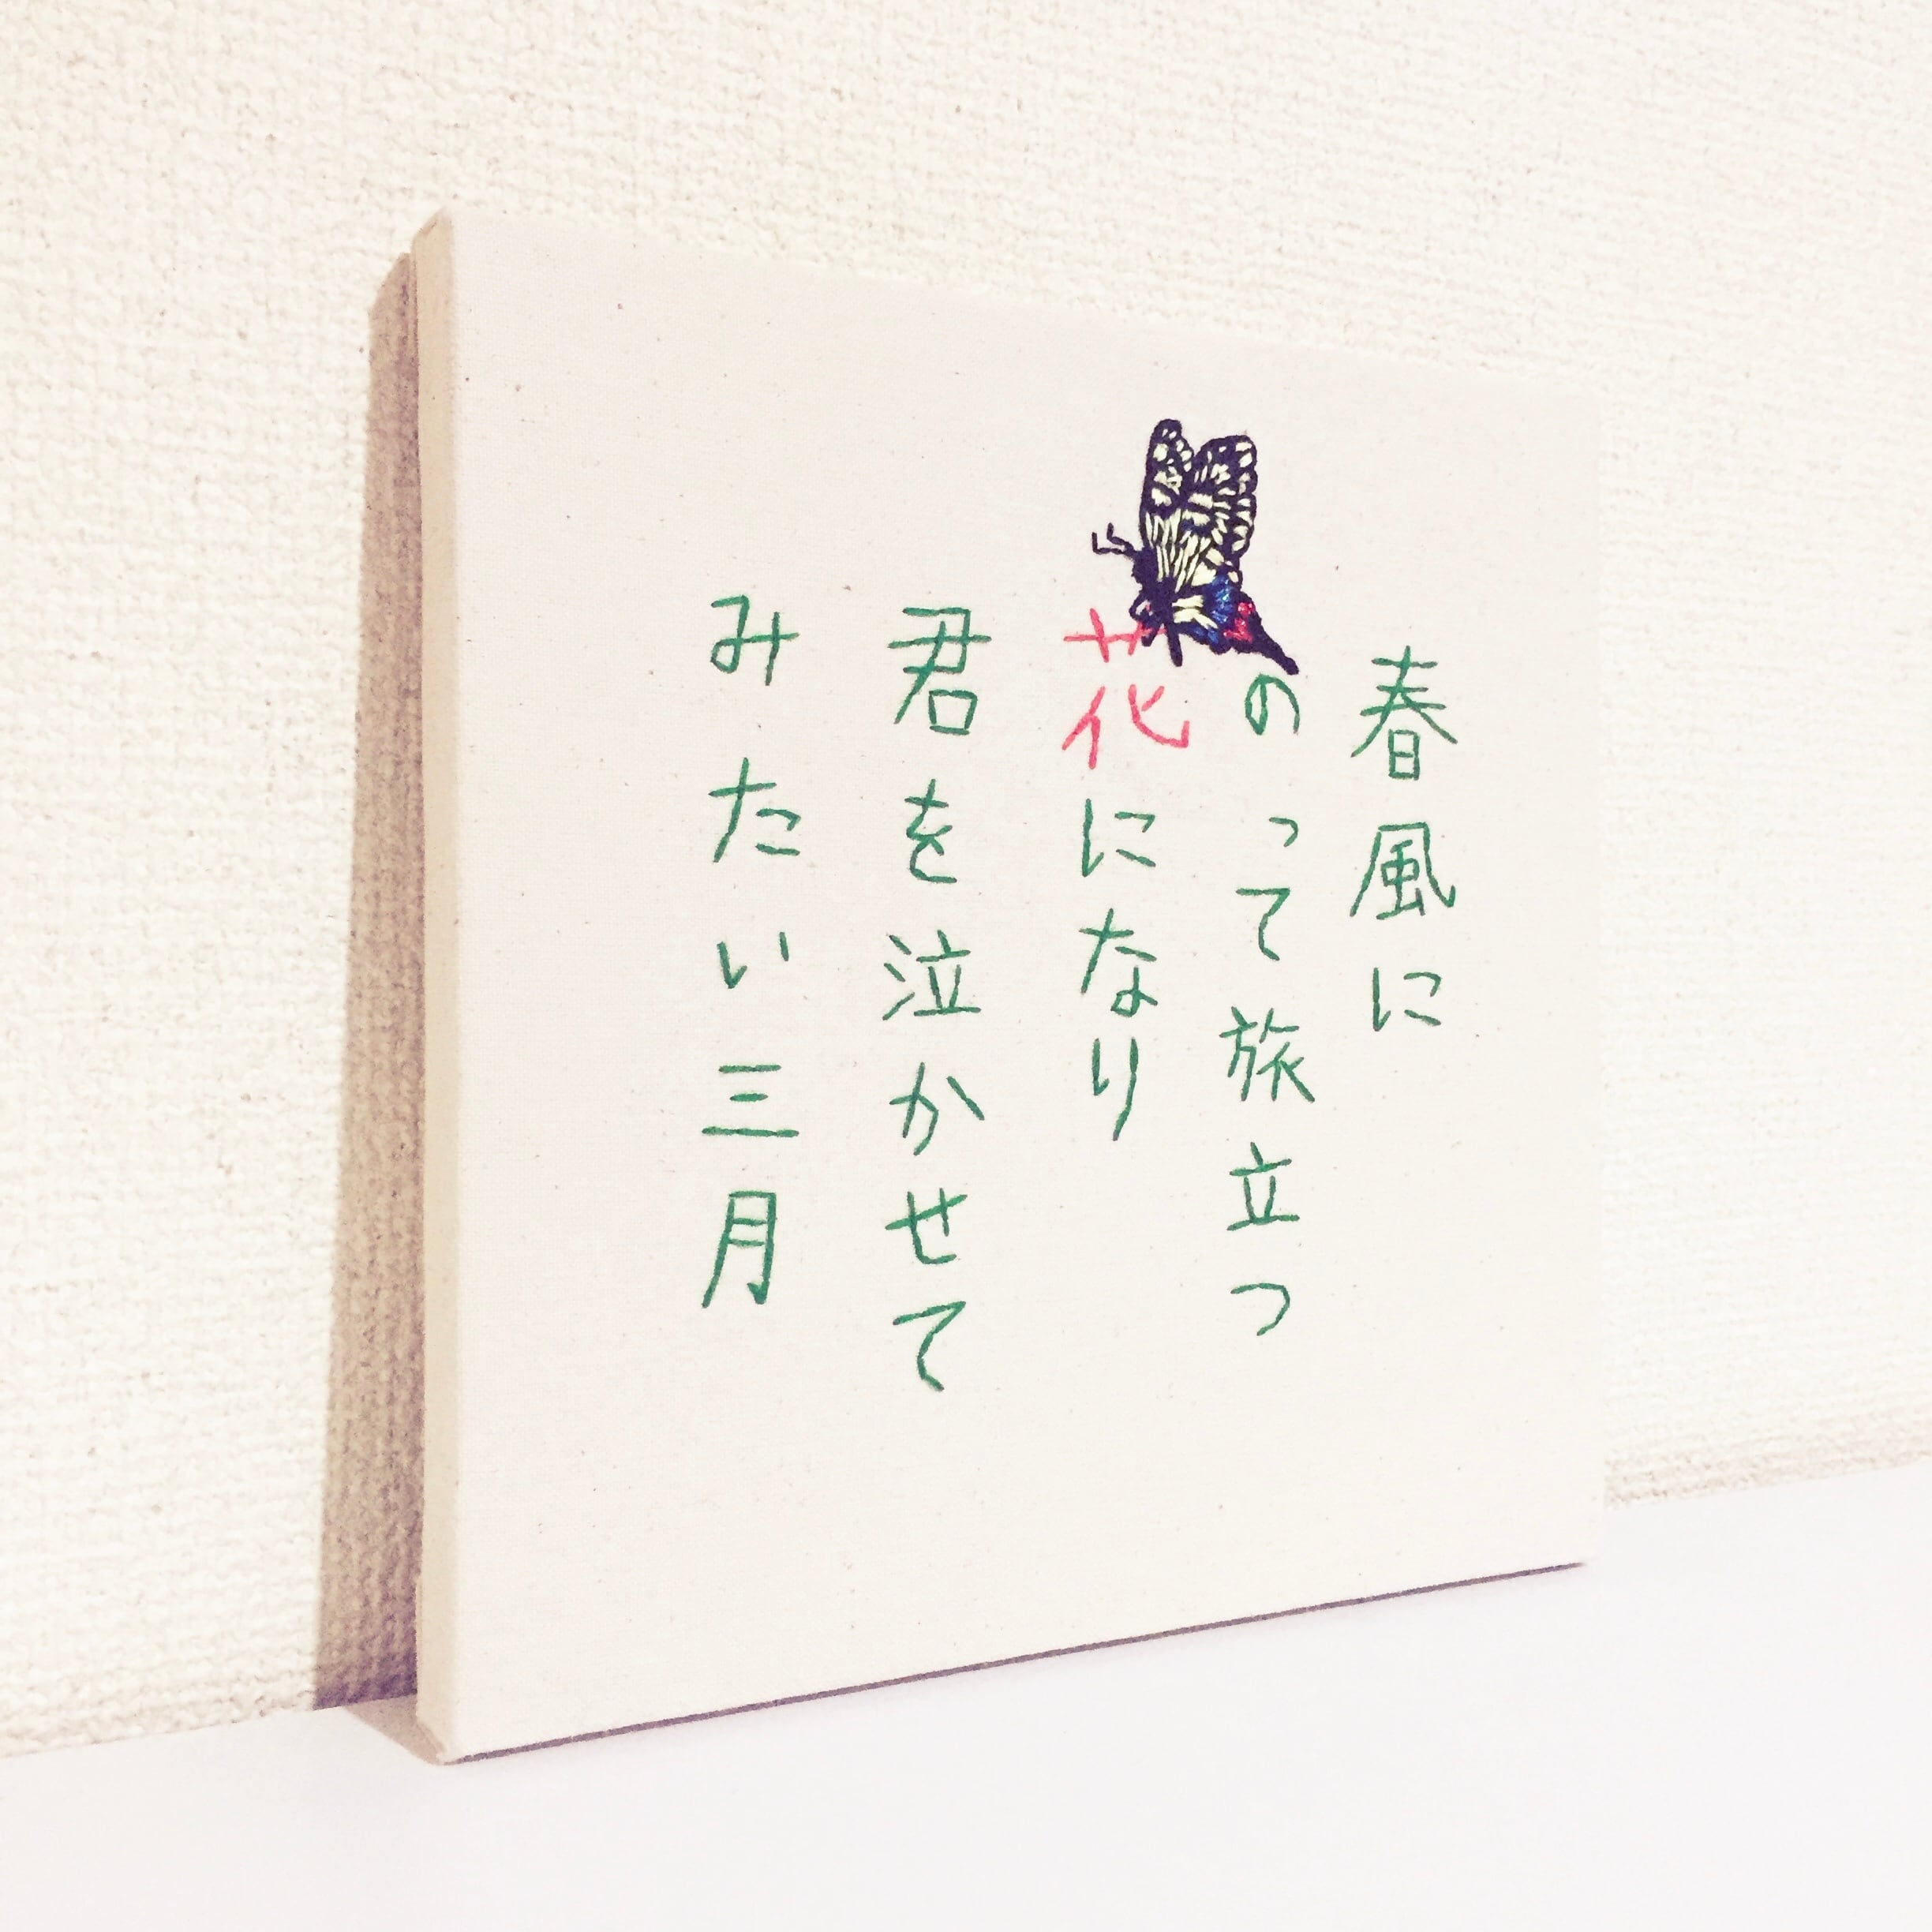 春風に
のって旅立つ
花になり
君を泣かせて
みたい三月